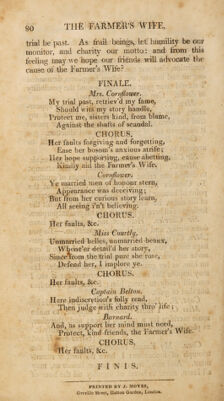 80 THE FARMER'S WIFE.
trial be past. As frail beings, let humility be our
monitor, and charity our motto: and from this
feeling may we hope our friends will advocate the
cause of the Farmer's Wife?
FINALE.
Mrs. Cornflower.
My trial past, retriev'd my fame,
Should wits my story handle,
Protect me, sisters kind, from blame,
Against the shafts of scandal.
CHORUS.
Her faults forgiving and forgetting,
Ease her bosom's anxious strife;
Her hope supporting, cause abetting,
Kindly aid the Farmer's Wife.
Cornflower.
Ye married men of honour stern,
Appearance was deceiving;
But from her curious story learn,
All seeing i'n't believing.
CHORUS.
Her faults, &c.
Miss Courtly.
Unmarried belles, unmarried beaux,
Whene'er detail'd her story,
Since from the trial pure she rose,
Defend her, I implore ye.
CHORUS.
Her faults, &c.
Captain Belton.
Here indiscretion's folly read,
Then judge with charity thro' life;
Barnard.
And, as support her mind must need,
Protect, kind friends, the Farmer's Wife.
CHORUS.
Her faults, &c.
FINIS.
PRINTED BY J. MOYES,
Greville Street, Hatton Garden, London.